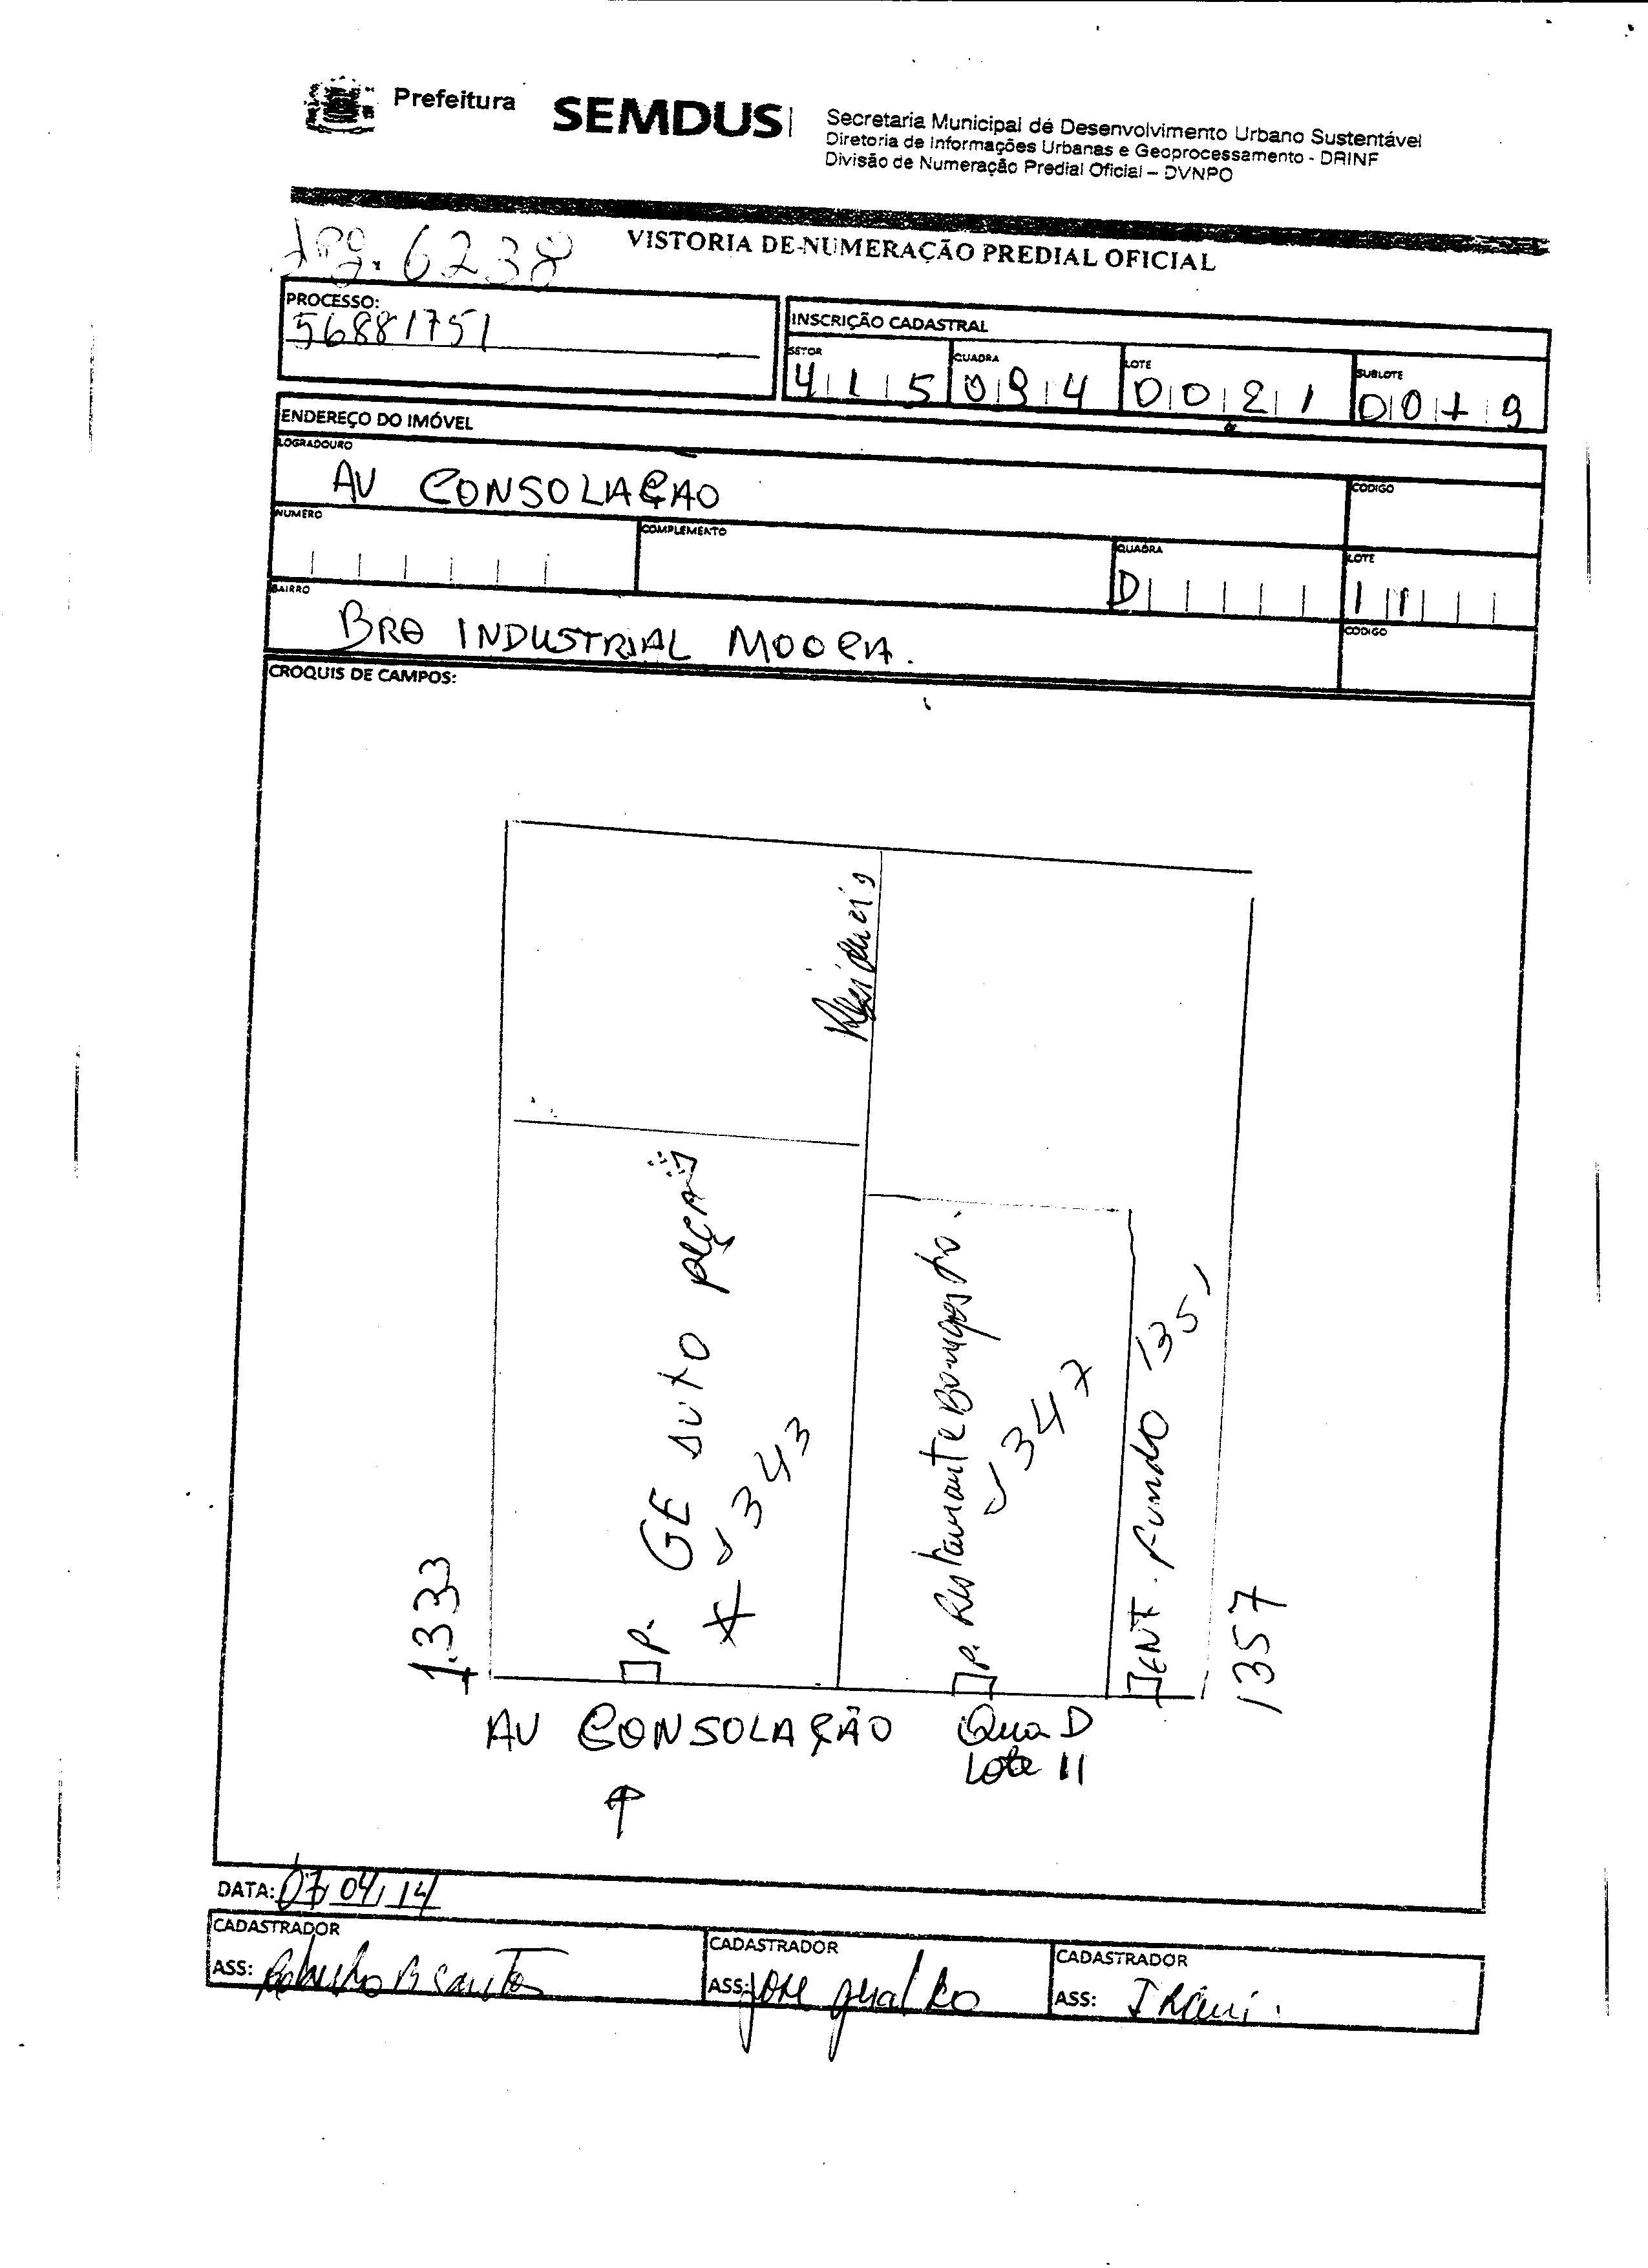 Prefeitura
SEMDUS
Secretaria Municipal de Desenvolvimento Urbano Sustentável
Diretoria de Informações Urbanas e Geoprocessamento - DRINF
Divisão de Numeração Predial Oficial – DVNPO
6238
VISTORIA DE NUMERAÇÃO PREDIAL OFICIAL
PROCESSO:
56881751
INSCRIÇÃO CADASTRAL
SETOR QUADRA LOTE SUBLOTE
415 094 0021 0019
ENDEREÇO DO IMÓVEL
LOGRADOURO CODIGO
AV CONSOLAÇAO
NUMERO COMPLEMENTO QUADRA LOTE
D 11
BAIRRO CODIGO
BRO INDUSTRIAL MOOCA.
CROQUIS DE CAMPOS:
Residencia
GE auto peças
P.
343
P. Restaurante
347
ENT. fundo 1351
1333
1357
AV CONSOLAÇÃO
Qua D
Lote 11
DATA: 07/04/14
CADASTRADOR CADASTRADOR CADASTRADOR
ASS: ASS: Jose Geraldo ASS: Irani.